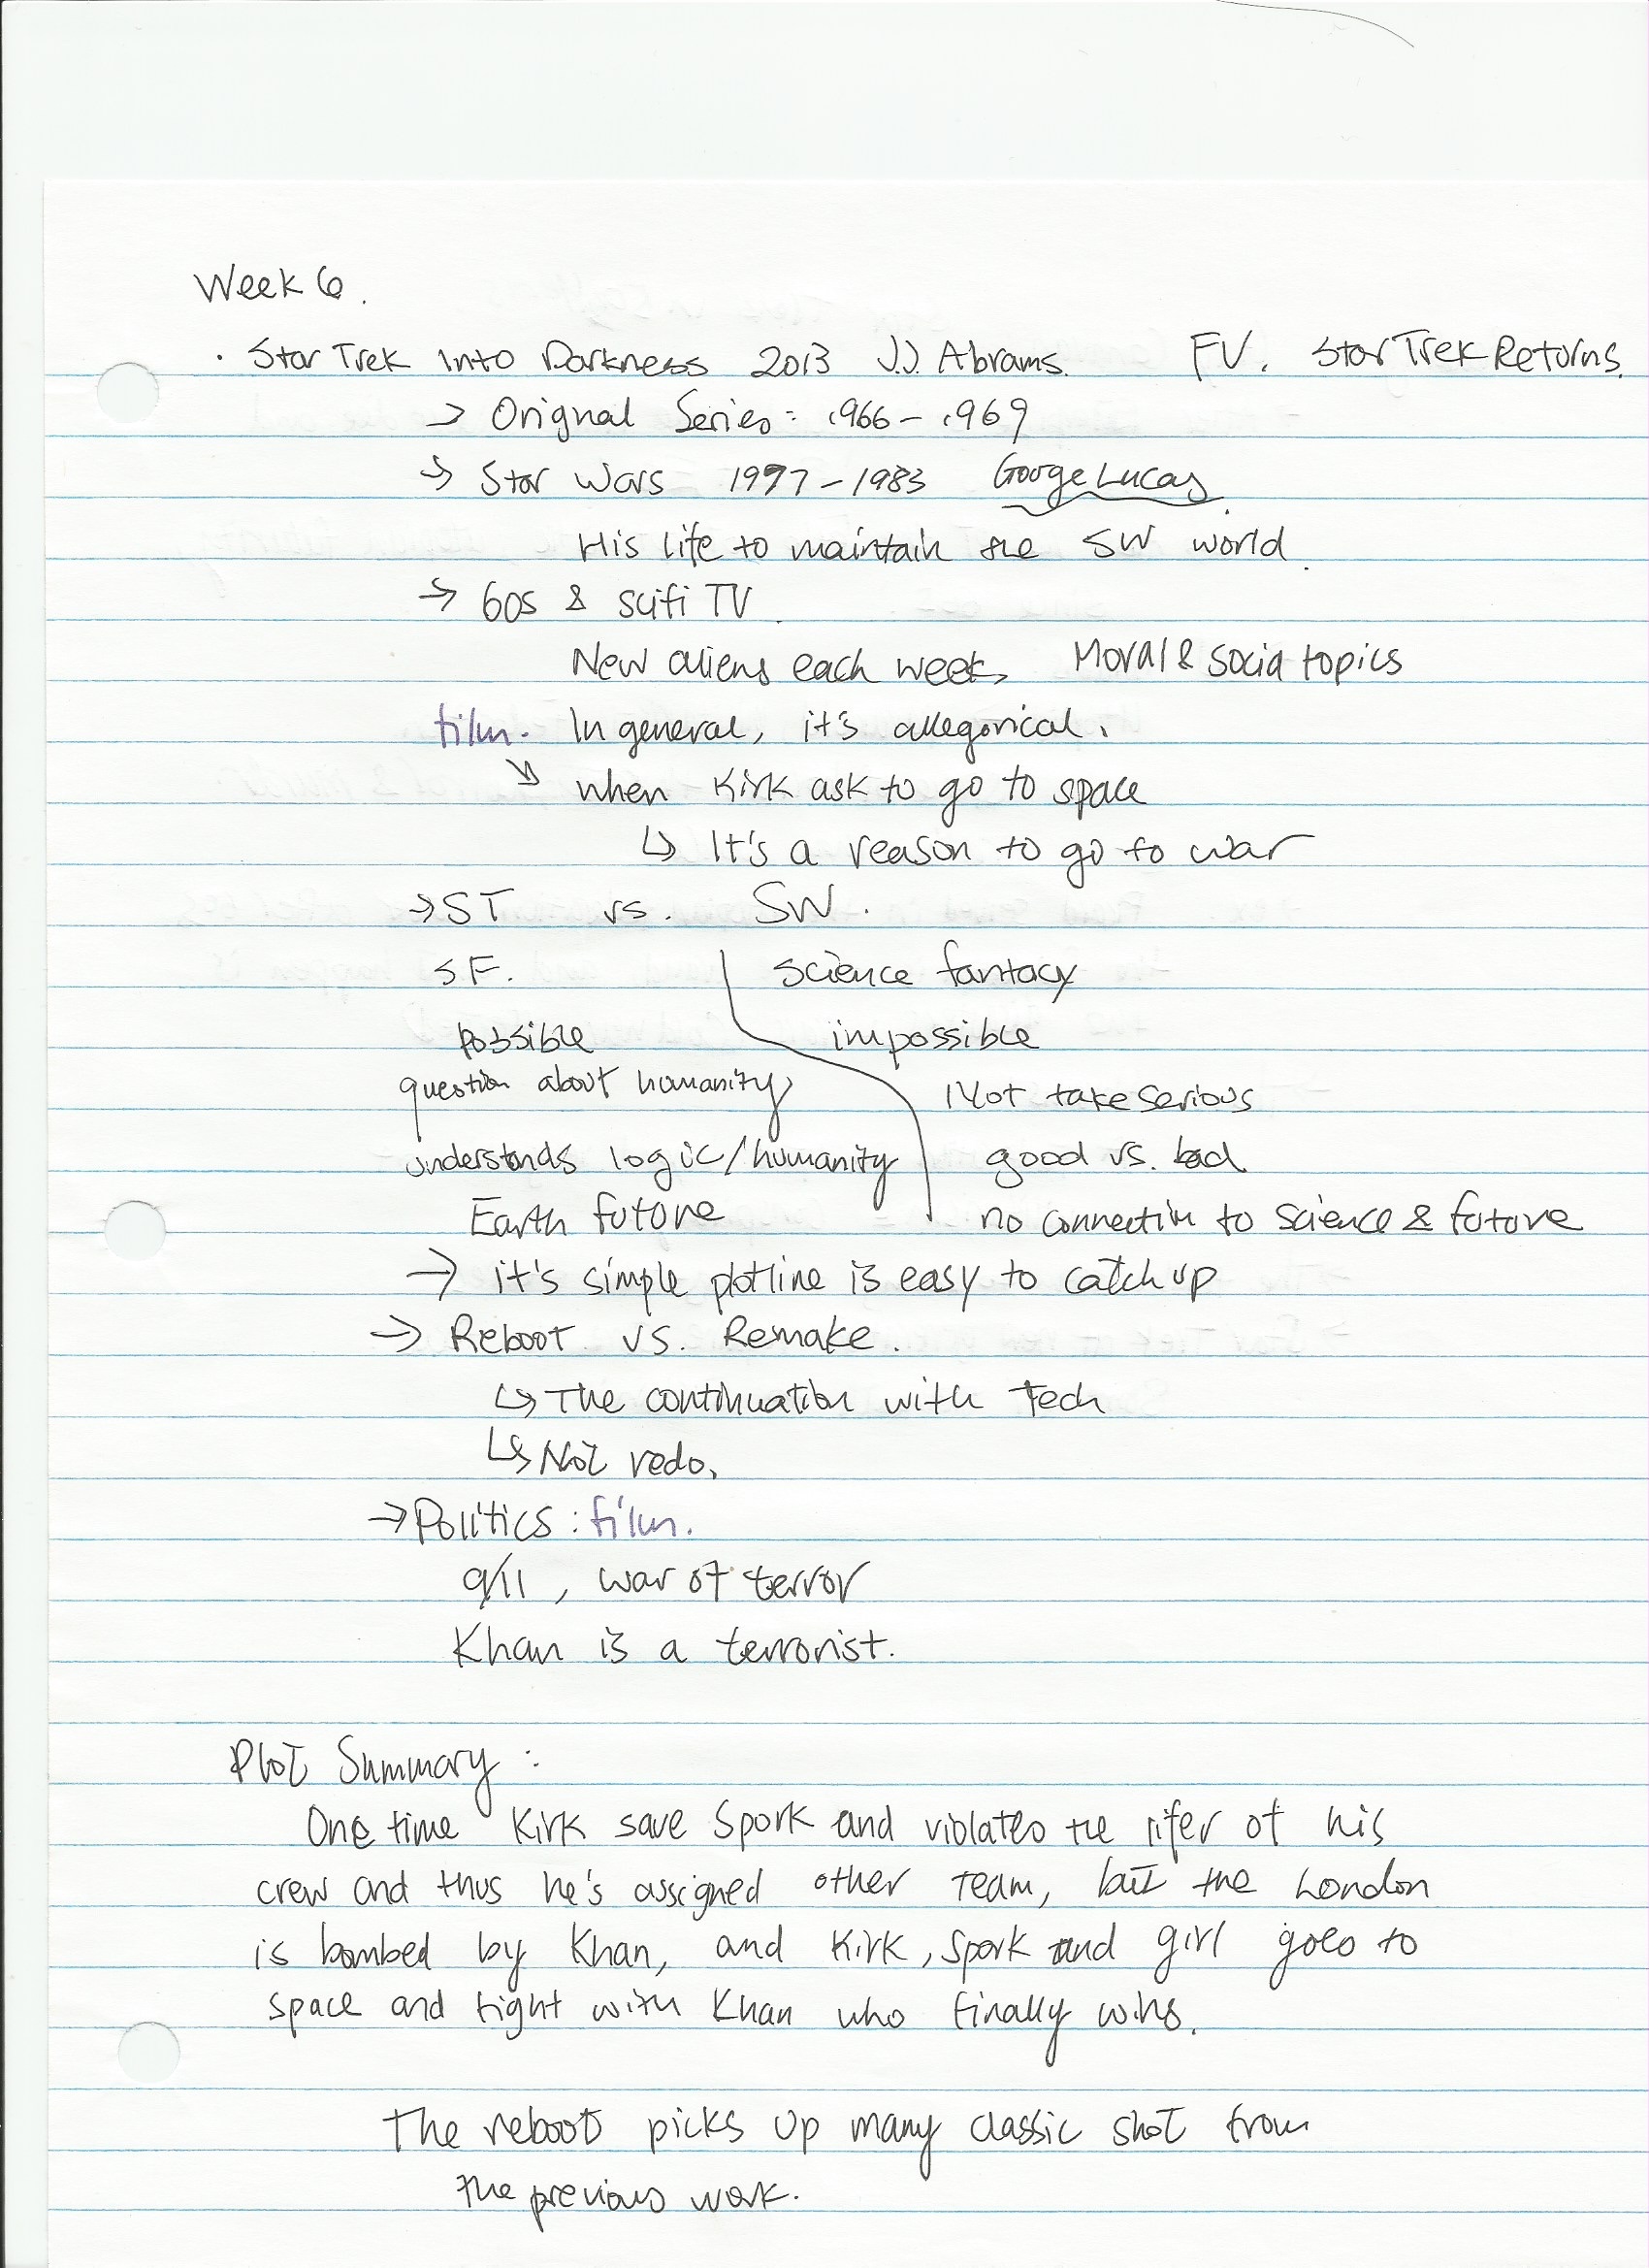 Week 6.
· Star Trek Into Darkness 2013 J.J. Abrams. FV. Star Trek Returns.
→ Orignal Series: 1966-1969
→ Star Wars 1977-1983 George Lucas.
His life to maintain the SW world.
→ 60s & scifi TV.
New aliens each week, Moral & socia topics
film. In general, it's allegorical.
↘ when Kirk ask to go to space
↳ It's a reason to go to war
→ ST vs. SW.
SF. science fantacy
possible impossible
question about humanity Not take serious
understands logic/humanity good vs. bad
Earth future no connection to science & future
→ it's simple plotline is easy to catch up
→ Reboot vs. Remake.
↳ The continuation with Tech
↳ Not redo.
→ Politics: film.
9/11, war of terror
Khan is a terrorist.
Plot Summary:
One time Kirk save Spork and violates the of his
crew and thus he's assigned other team, but the London
is bombed by Khan, and Kirk, Spork and girl goes to
space and fight with Khan who finally wins.
The reboot picks up many classic shot from
the previous work.